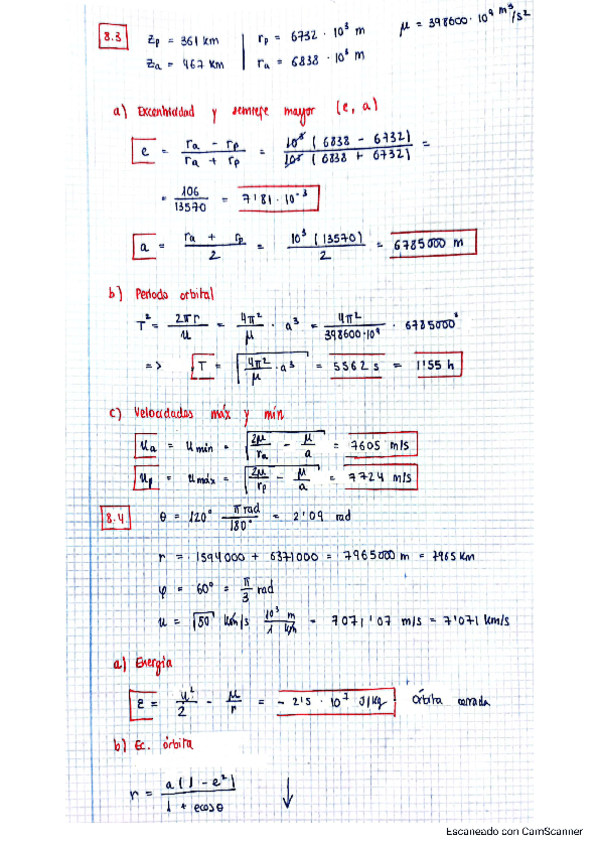 8.3 zp = 361 km | rp = 6732 · 10³ m μ = 398600 · 10⁹ m³/s²
za = 467 km | ra = 6838 · 10³ m
a) Excentricidad y semieje mayor (e, a)
e = (ra - rp)/(ra + rp) = 10³ (6838 - 6732)/10³ (6838 + 6732) =
= 106/13570 = 7'81 · 10⁻³
a = (ra + rp)/2 = 10³ (13570)/2 = 6785000 m
b) Periodo orbital
T² = 2πr/u = 4π²/μ · a³ = 4π²/398600·10⁹ · 6785000³
=> T = √(4π²/μ · a³) = 5562 s = 1'55 h
c) Velocidades máx y mín
ua = u mín = √(2μ/ra - μ/a) = 7605 m/s
up = u máx = √(2μ/rp - μ/a) = 7724 m/s
8.4 θ = 120° π rad/180° = 2'09 rad
r = 1594000 + 6371000 = 7965000 m = 7965 km
φ = 60° = π/3 rad
u = √50 km/s 10³ m/1 km = 7071'07 m/s = 7'071 km/s
a) Energía
ε = u²/2 - μ/r = - 2'5 · 10⁷ J/kg órbita cerrada
b) Ec. órbita
r = a(1 - e²)/1 + ecosθ ↓
Escaneado con CamScanner